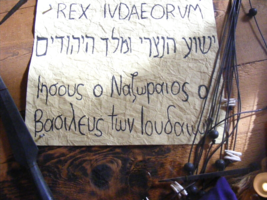 REX IVDAEORVM
ישוע הנצרי ומלך היהודים
Ιησους ο Ναζωραιος ο
βασιλευς των Ιουδαι